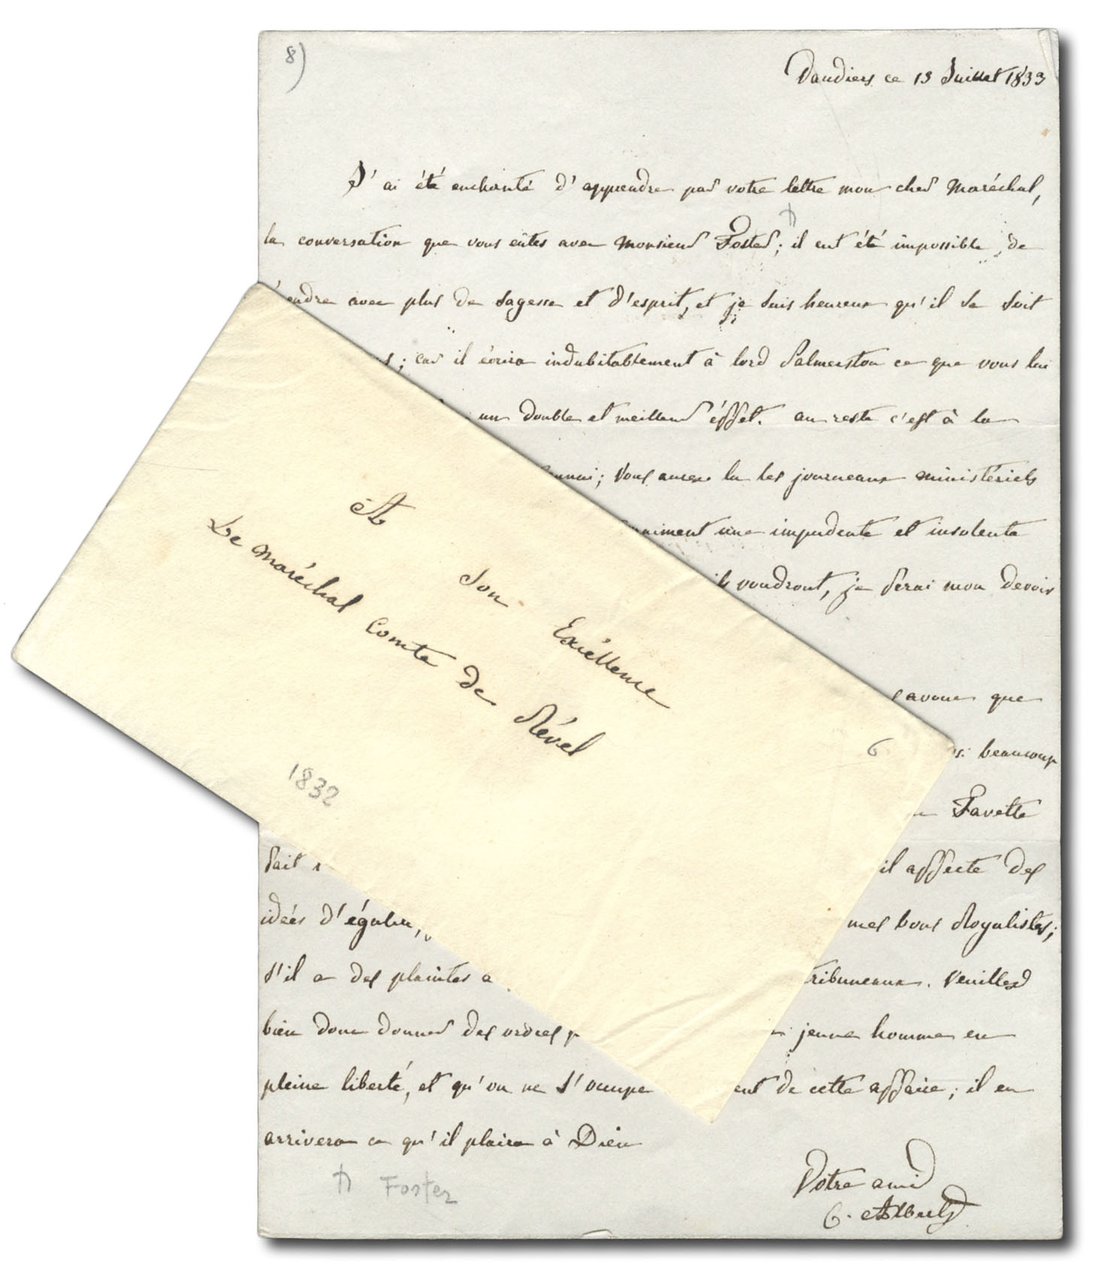 8)
ce 13 Juillet 1833
J'ai été enchanté d'apprendre par votre lettre mon cher Maréchal,
la conversation que vous eûtes avec Monsieur Foster; il eut été impossible de
avec plus de sagesse et d'esprit, et je suis heureux qu'il se soit
; car il écrira indubitablement à lord Palmerston ce que vous lui
un double et meilleur éffet. au reste c'est à la
; vous aurez lu les journeaux ministériels
une impudente et insolente
voudront, je ferai mon devoir
avoue que
beaucoup
Favette
fait
il affecte des
idées d'égalité,
mes bons Royalistes;
s'il a des plaintes à
tribuneaux. Veuillez
bien donc donner des ordres
jeune homme en
pleine liberté, et qu'on ne s'occupe
de cette affaire; il en
arrivera ce qu'il plaira à Dieu
Votre ami
C. Albert
Foster
A
Son Excéllence
Le Maréchal comte de Révél
1832
6.